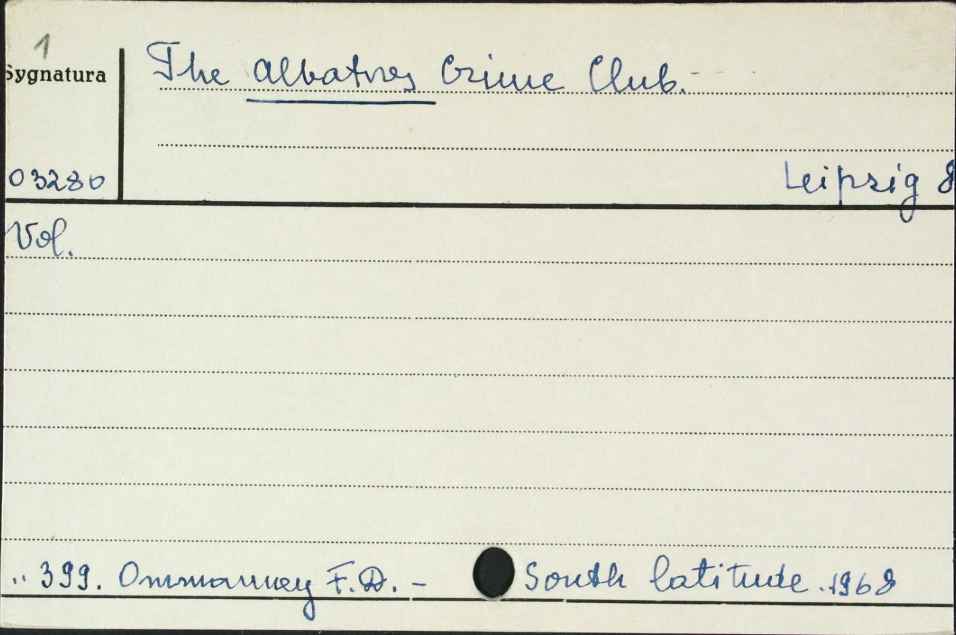 1
Sygnatura
The Albatros Crime Club.-
03280
Leipzig 8
Vol.
" 399. Ommanney F.D. - South latitude. 1968